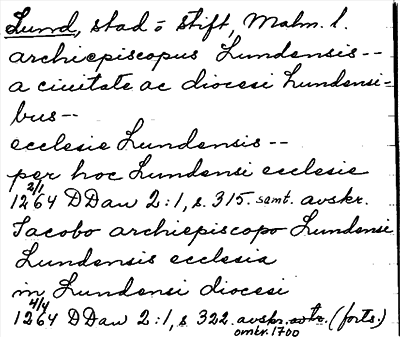 Lund, stad o stift, Malm. l.
archiepiscopus Lundensis--
a ciuitate ac diocesi Lundensi=
bus--
ecclesie Lundensis--
per hoc Lundensi ecclesie
2/1
1264 DDan 2:1, s. 315. samt. avskr.
Jacobo archiepiscopo Lundensi
Lundensis ecclesia
in Lundensi diocesi
4/4
1264 DDan 2:1, s 322. avskr. (forts.)
omkr. 1700